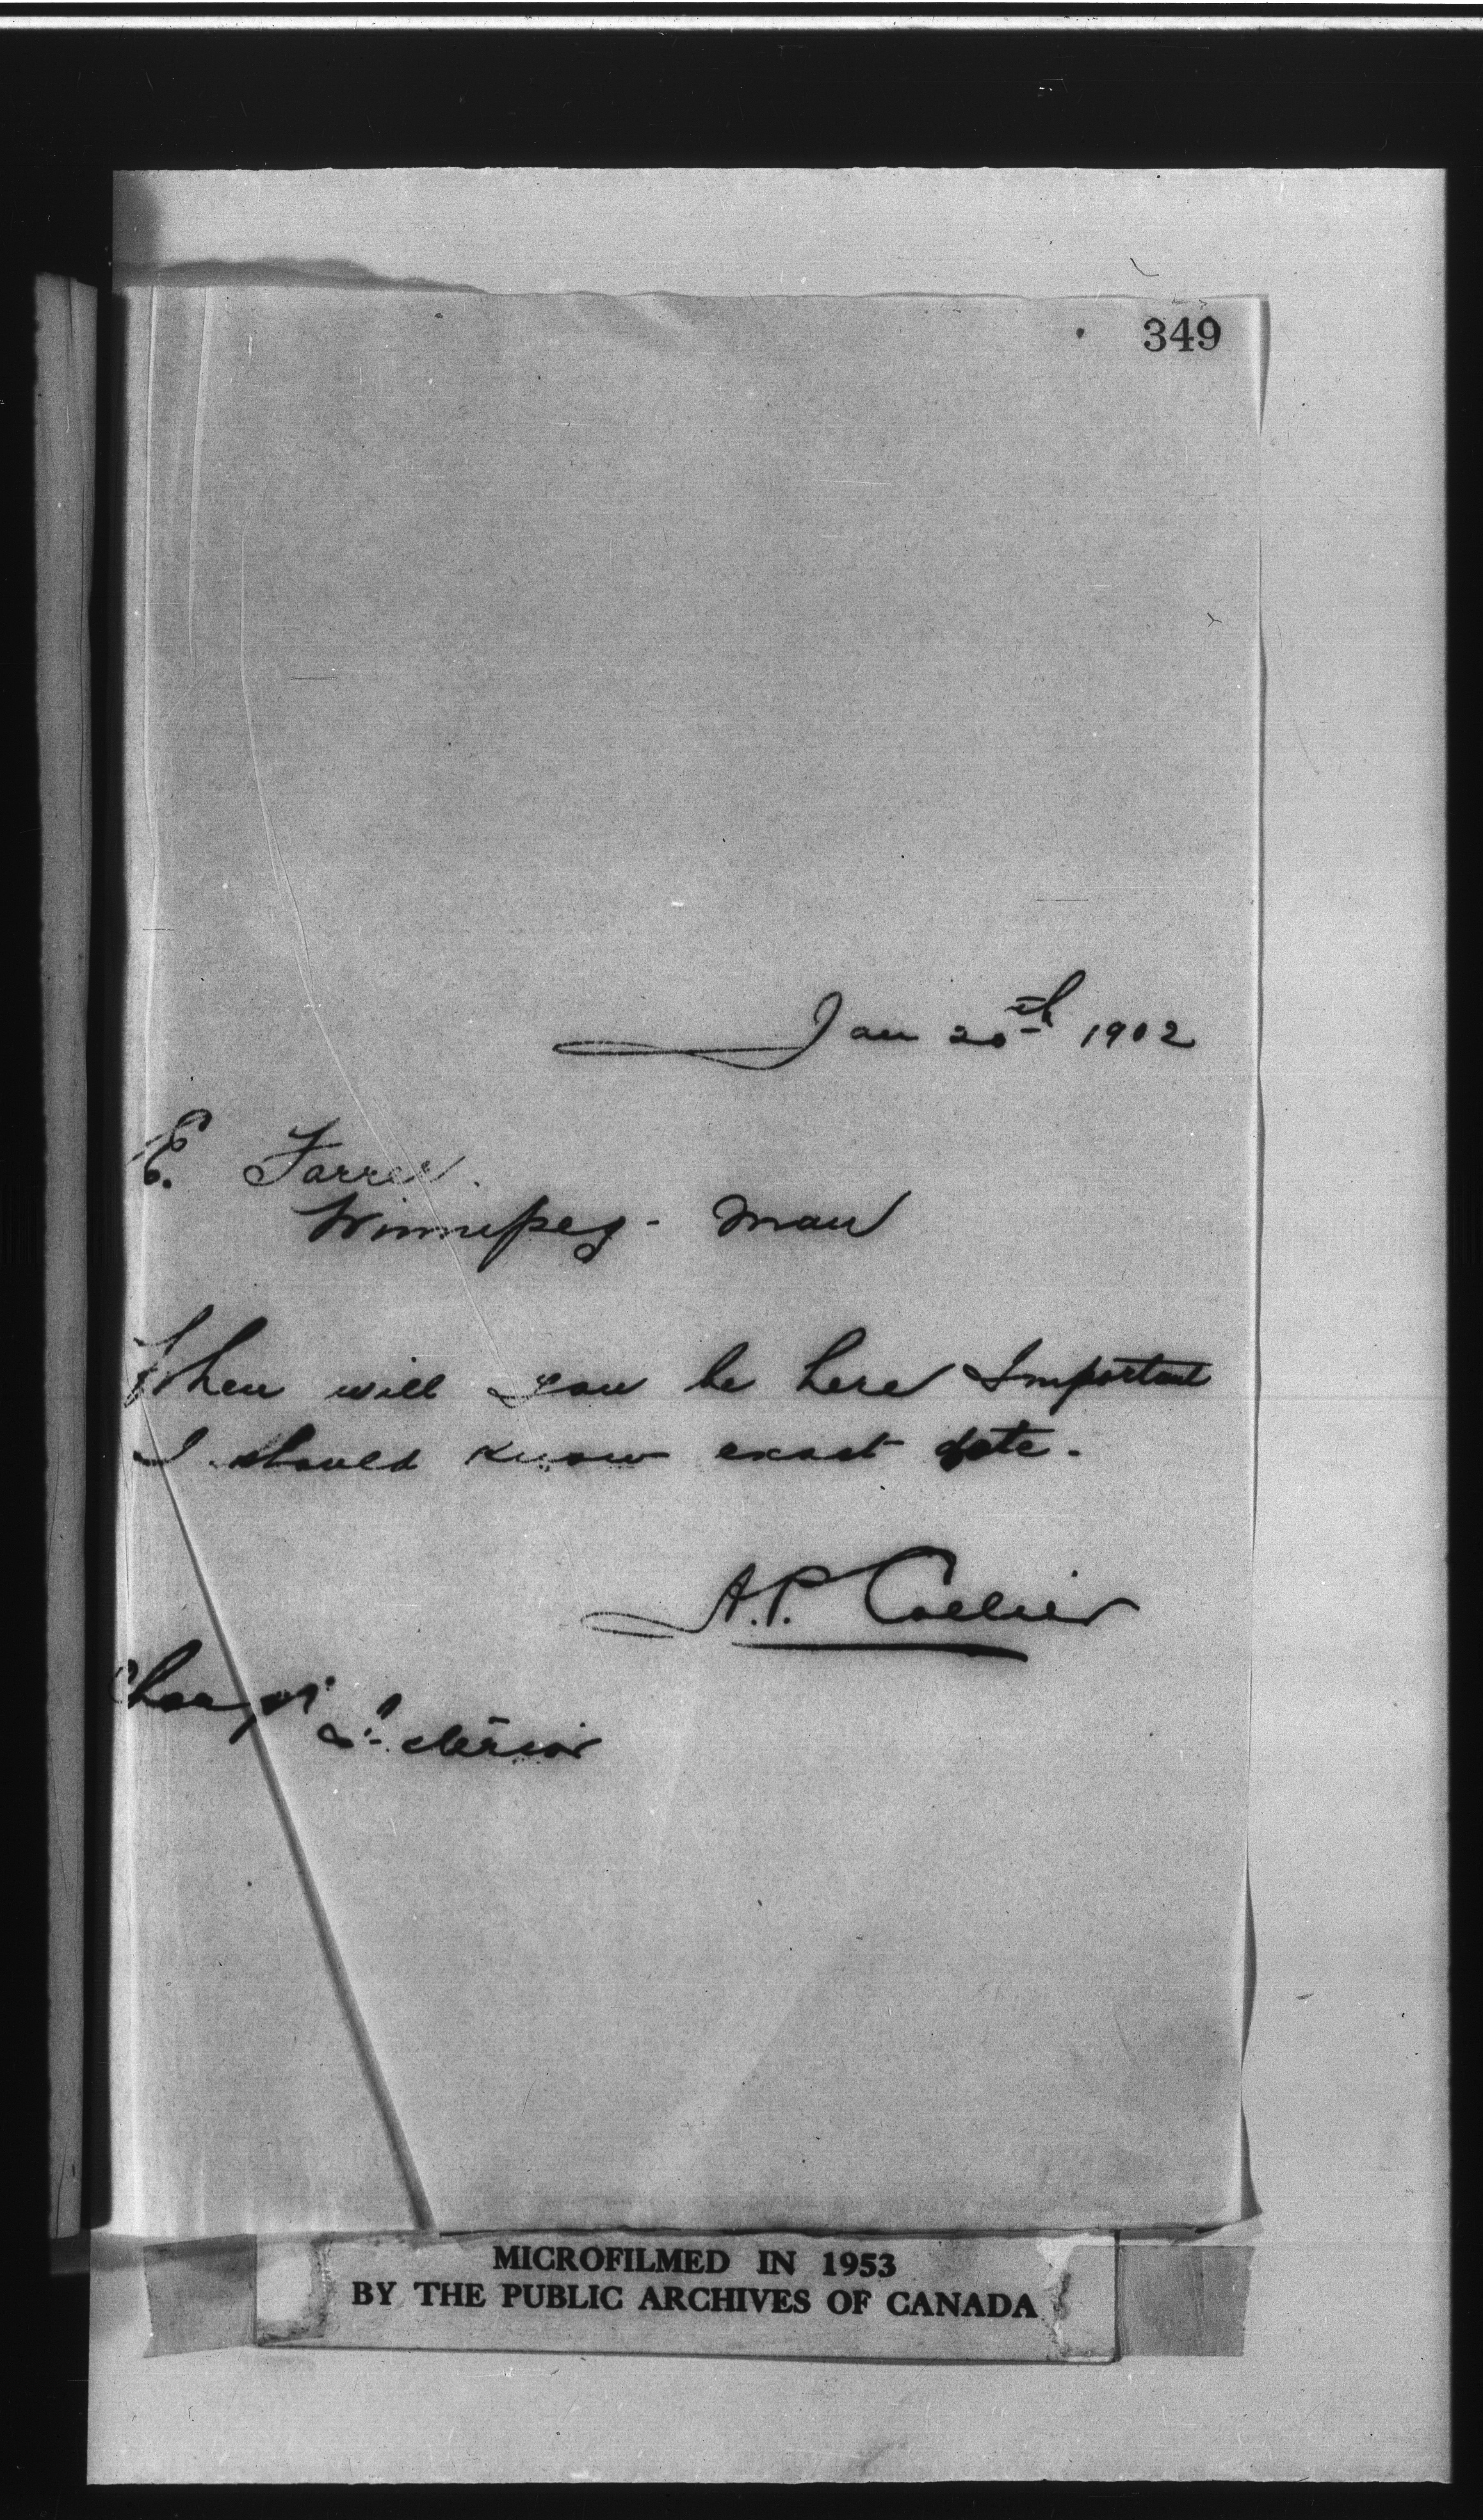 349
Jan 20th 1902
E. Farrer.
Winnipeg - Man
When will you be here Important
I should know exact date.
A.P. Collier
Charge
MICROFILMED IN 1953
BY THE PUBLIC ARCHIVES OF CANADA